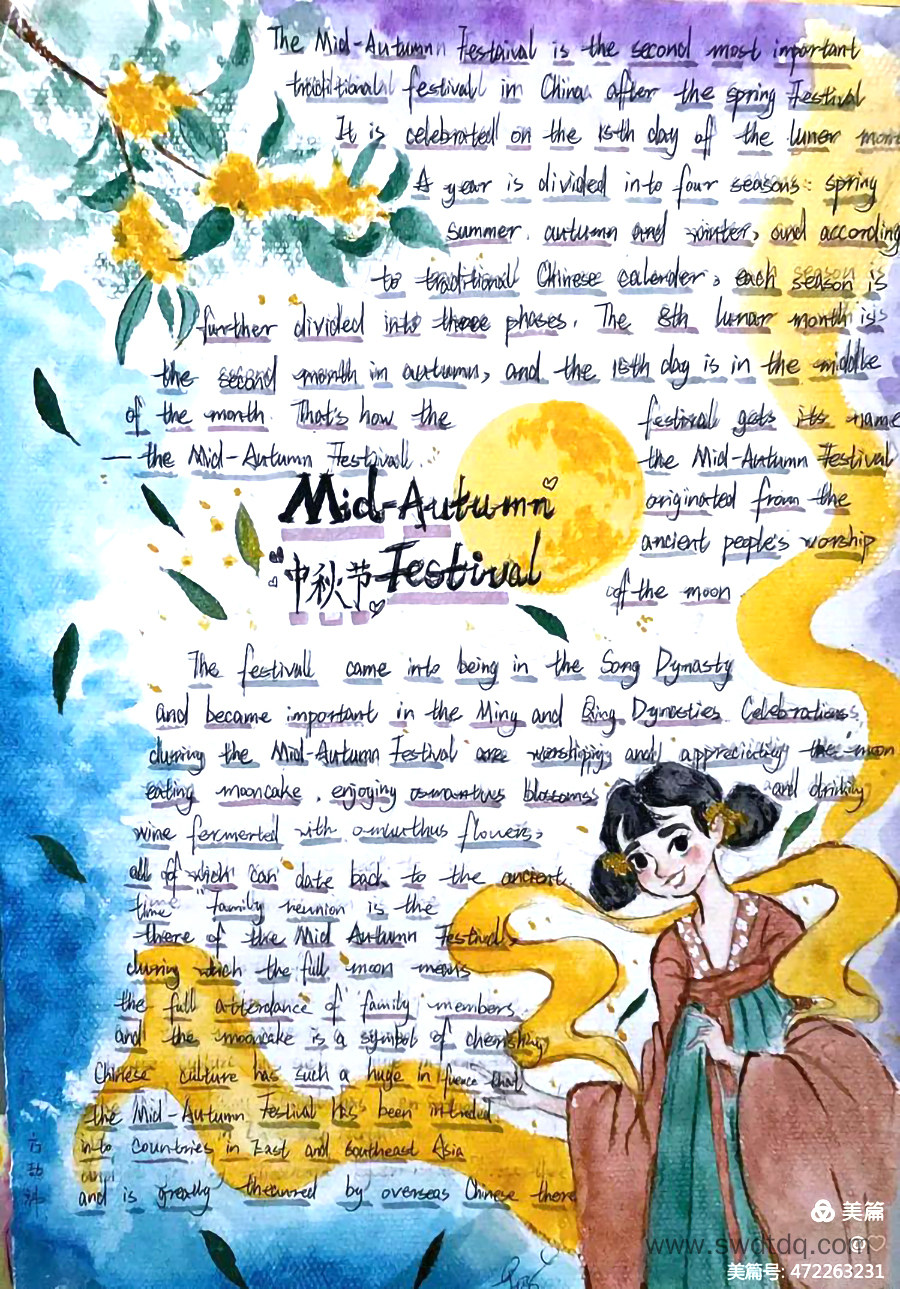 The Mid-Autumnn Festaival is the second most important
traditional festivall in China after the spring Festival
It is celebrated on the 15th day of the lunar mon
A year is divided into four seasons: spring
summer. autumn and winter, and according
to traditional Chinese calender, each season is
further divided into three phases. The 8th lunar month is
the second month in autumn, and the 15th day is in the middle
of the month. That's how the festival gets its name
— the Mid-Autumn Festivall. the Mid-Autumn Festival
originated from the
ancient people's worship
of the moon
Mid-Autumn
中秋节 Festival
The festivall came into being in the Song Dynasty
and became important in the Ming and Qing Dynasties. Celebrations
during the Mid-Autumn Festival are worshipping and appreciating the moon
eating mooncake, enjoying osmantus blossoms and drinking
wine fermented with omnuthus flowers,
all of which can date back to the ancient
time "Family reunion is the
there of the Mid Autumn Festival,
during which the full moon means
the full attendance of family members
and the mooncake is a symbol of cherishing
Chinese culture has such a huge influence that
the Mid-Autumn Festival has been intruded
into countries in East and southeast Asia
and is greatly theaured by overseas Chinese there
美篇
www.swdtdq.com
美篇号: 472263231